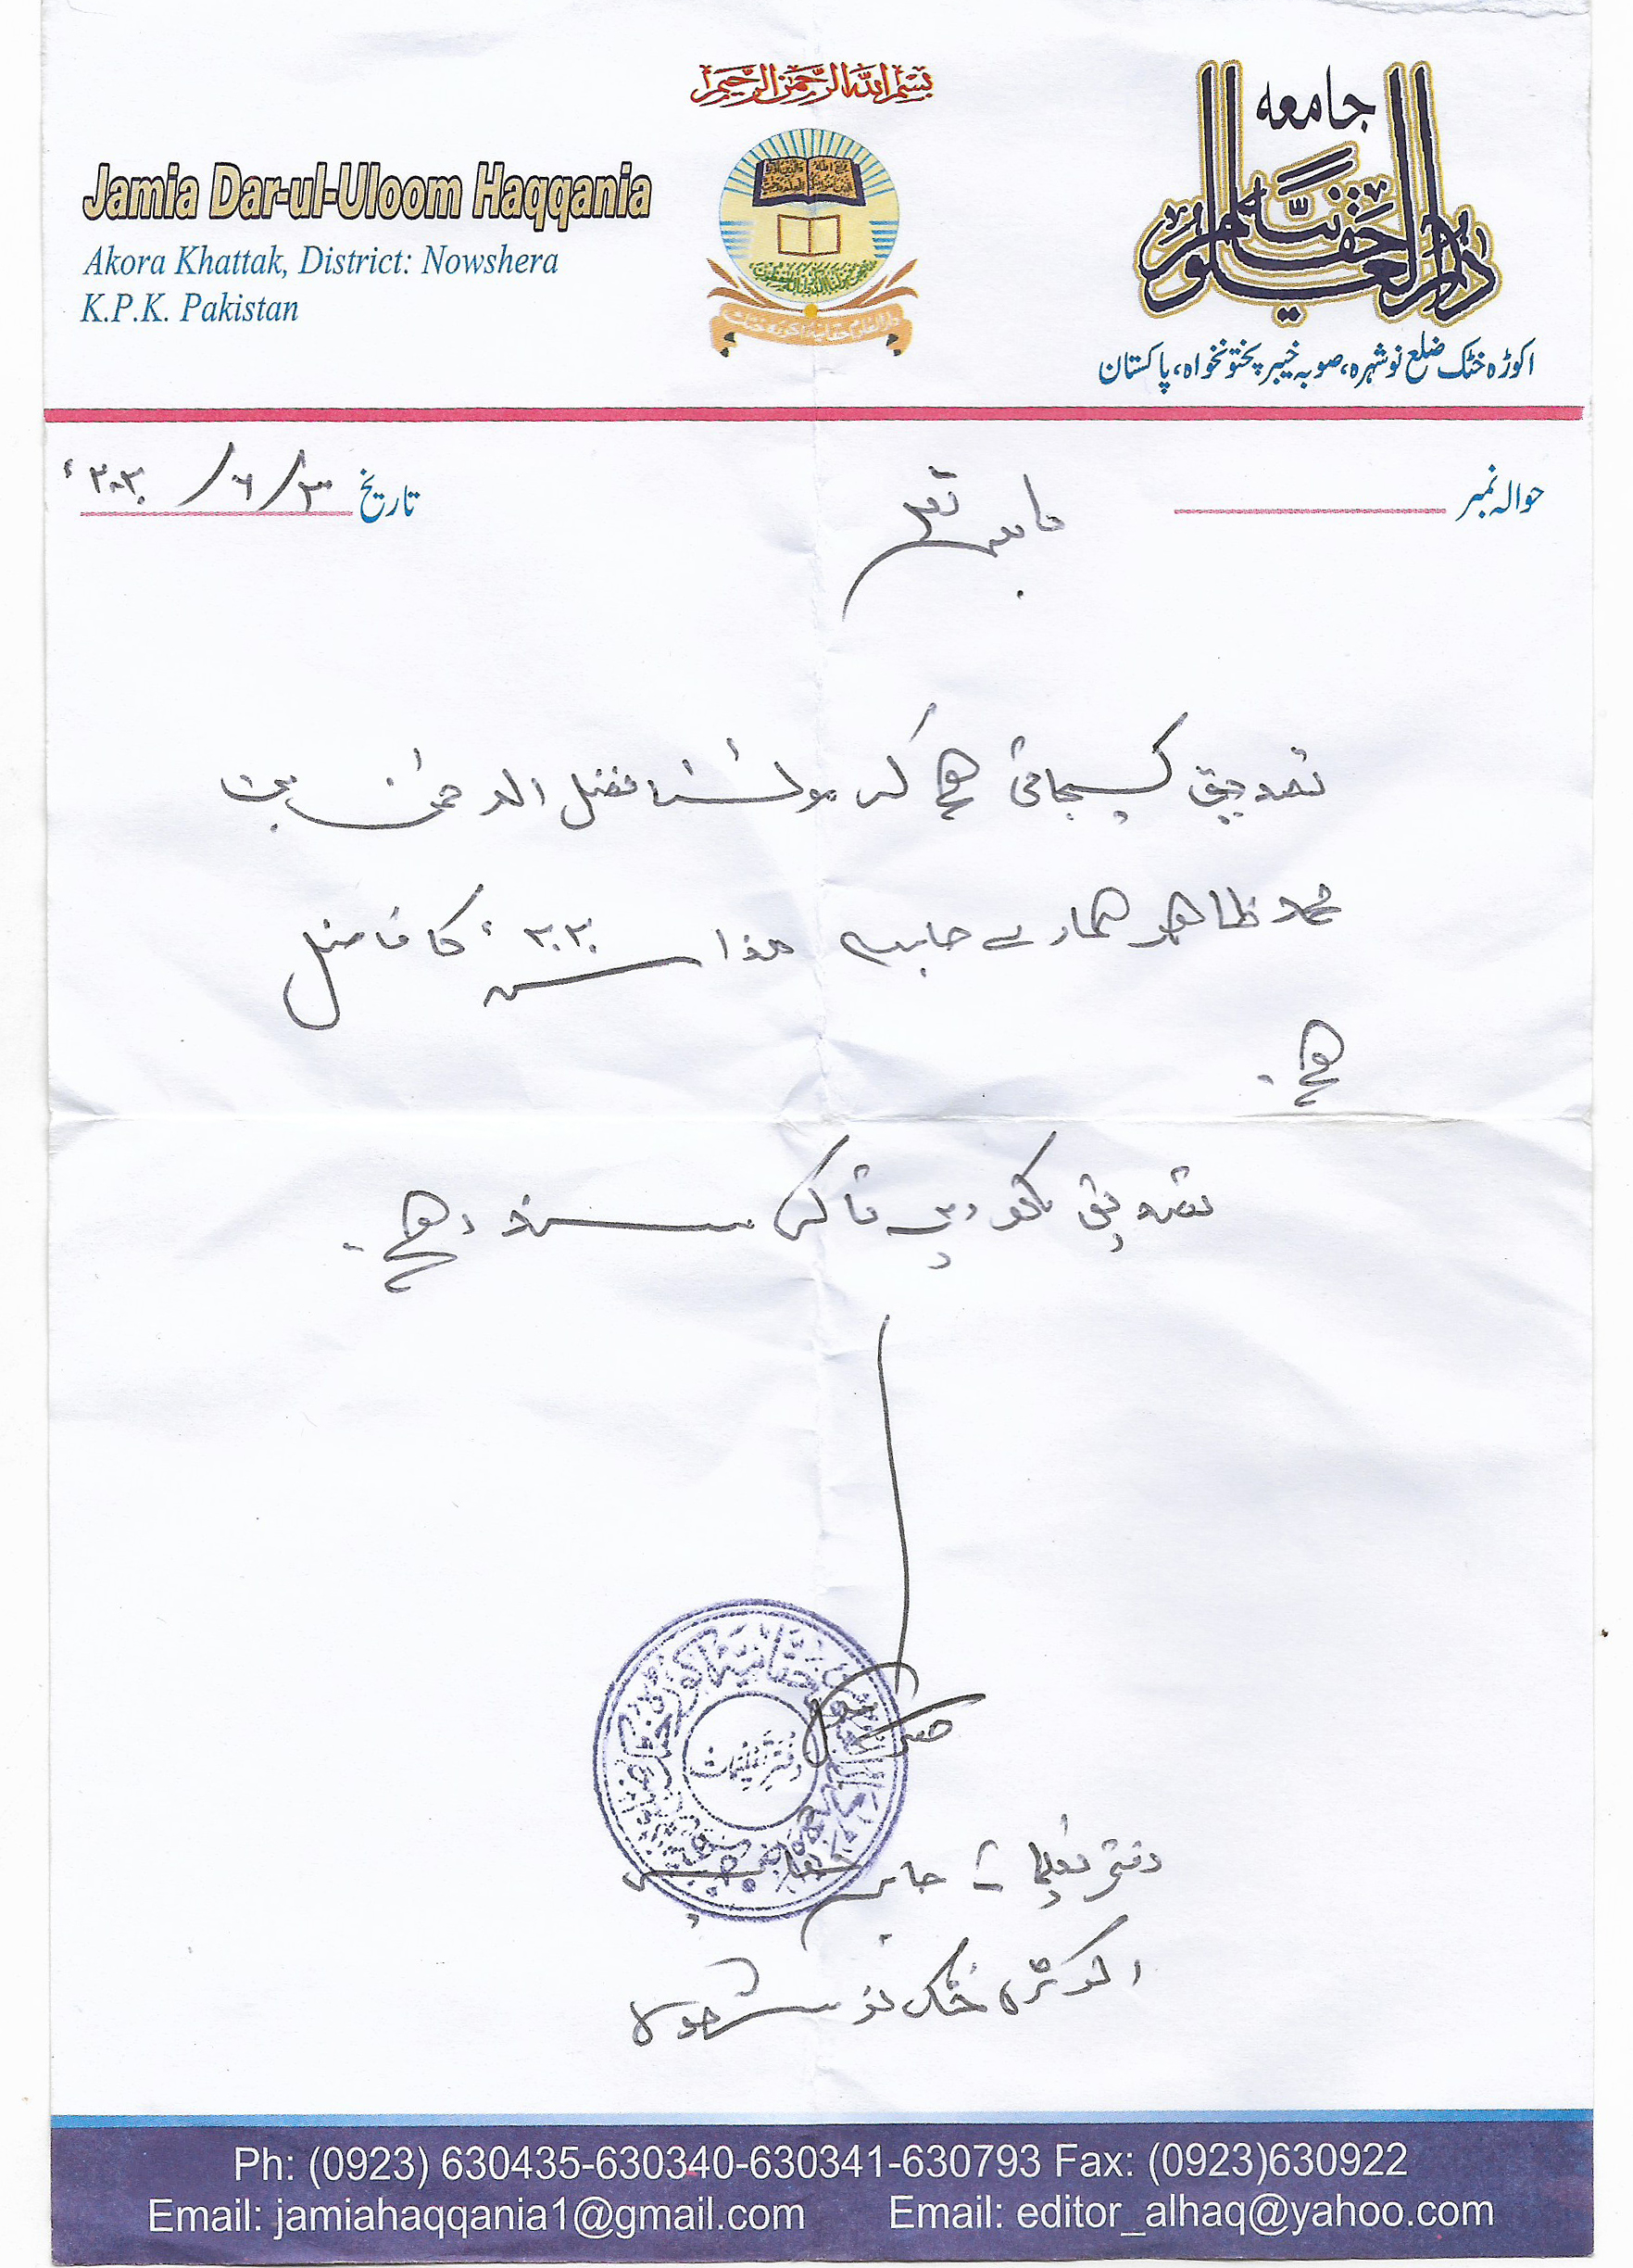 بسم الله الرحمن الرحیم
Jamia Dar-ul-Uloom Haqqania
Akora Khattak, District: Nowshera
K.P.K. Pakistan
جامعہ
دارالعلوم حقانیہ
اکوڑہ خٹک ضلع نوشہرہ، صوبہ خیبر پختونخواہ، پاکستان
حوالہ نمبر
تاریخ ۳۰/۶/۲۰۲۰ء
تصدیق کیجاتی ہے کہ مولٰنا فضل الرحمٰن بن
محمد طاہر ہمارے جامعہ ھذا سنہ ۲۰۲۰ء کا فاضل
ہے۔
تصدیق لکھ دی تاکہ سند رہے۔
دفتر تعلیمات
دفتر تعلیمات جامعہ
اکوڑہ خٹک نوشہرہ
Ph: (0923) 630435-630340-630341-630793 Fax: (0923)630922
Email: jamiahaqqania1@gmail.com Email: editor_alhaq@yahoo.com